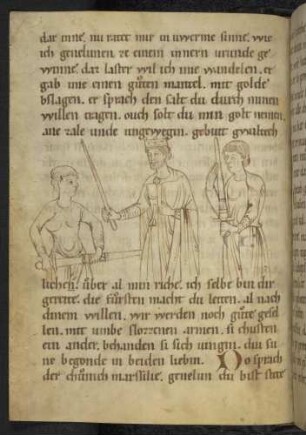 dar inne. nu ratet mir in uwerme sinne. wie
ich genelunen ze einem innern urunde ge
winne. daz laster wil ich ime wandelen. er
gab ime einen gůten mantel. mit golde
bslagen. er sprach den salt du durch minen
willen tragen. ouch solt du min golt nemen.
ane zale unde ungewegin. gebiut gwaltech
lichen. über al min riche. ich selbe bin dir
gerete. die fürsten macht du leiten. al nach
dinem willen. wir werden noch gůte gesel
len. mit umbe slozzenen armen. si chusten
ein ander. behanden si sich uiengin. diu su
ne begonde in beiden liebin. Do sprach
der chůnich marsilie. genelun du bist